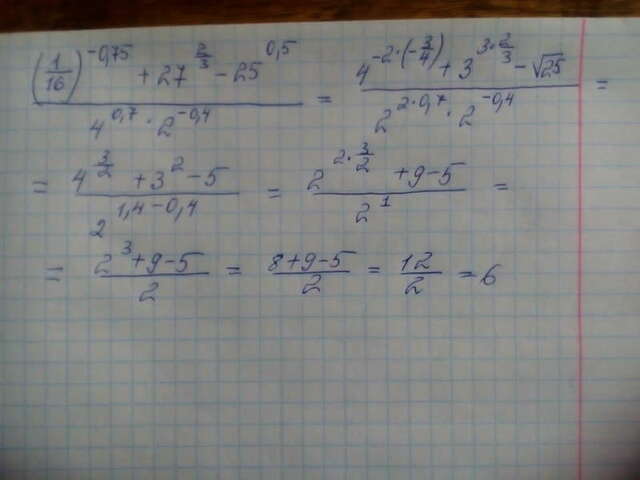 ((1/16)^(-0,75) + 27^(2/3) - 25^(0,5)) / (4^(0,7) · 2^(-0,4)) = (4^(-2·(-3/4)) + 3^(3·2/3) - √25) / (2^(2·0,7) · 2^(-0,4)) =
= (4^(3/2) + 3^2 - 5) / (2^(1,4-0,4)) = (2^(2·3/2) + 9 - 5) / (2^1) =
= (2^3 + 9 - 5) / 2 = (8 + 9 - 5) / 2 = 12/2 = 6